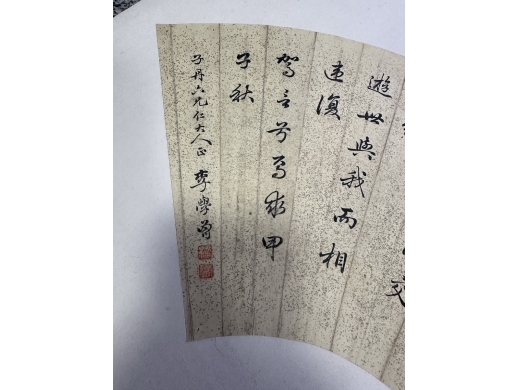 交
遊世與我而相
違復
駕言兮焉求甲
子秋
子丹六兄仁大人正 李學曾